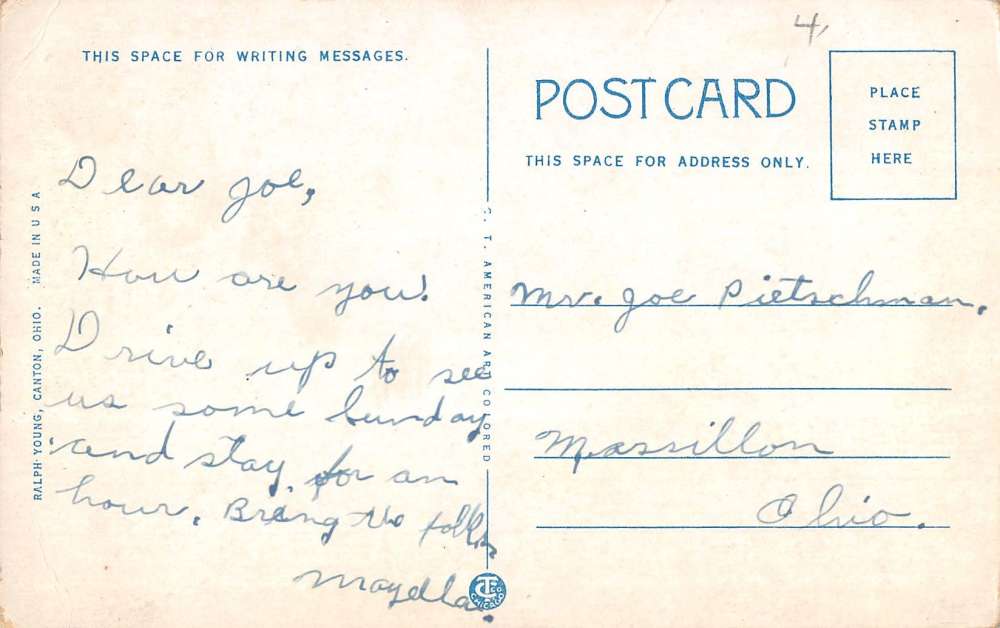 THIS SPACE FOR WRITING MESSAGES.
Dear Joe,
How are you!
Drive up to see
us some Sunday
and stay for an
hour. Bring the folks
Maydella.
RALPH YOUNG, CANTON, OHIO. MADE IN U S A
C. T. AMERICAN ART COLORED
CHICAGO
4,
POST CARD
THIS SPACE FOR ADDRESS ONLY.
PLACE
STAMP
HERE
Mr. Joe Pietschman.
Massillon
Ohio.